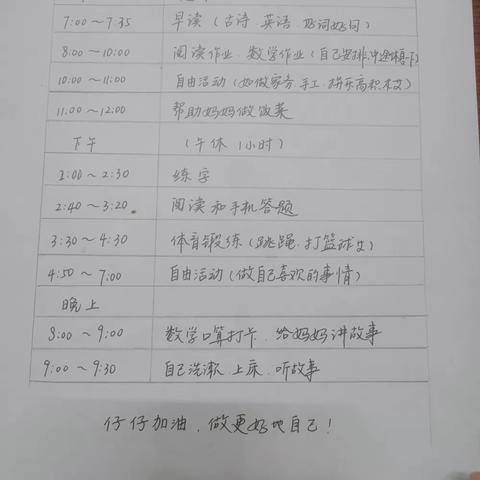 7:00～7:35 早读（古诗、英语、好词好句）
8:00～10:00 阅读作业、数学作业（自己安排,中途休息
10:00～11:00 自由活动（如做家务、手工、拼乐高积木
11:00～12:00 帮助妈妈做饭菜
下午 （午休1小时）
2:00～2:30 练字
2:40～3:20 阅读和手机答题
3:30～4:30 体育锻炼（跳绳、打篮球
4:50～7:00 自由活动（做自己喜欢的事情）
晚上
8:00～9:00 数学口算打卡、给妈妈讲故事
9:00～9:30 自己洗漱、上床、听故事
仔仔加油，做更好地自己！